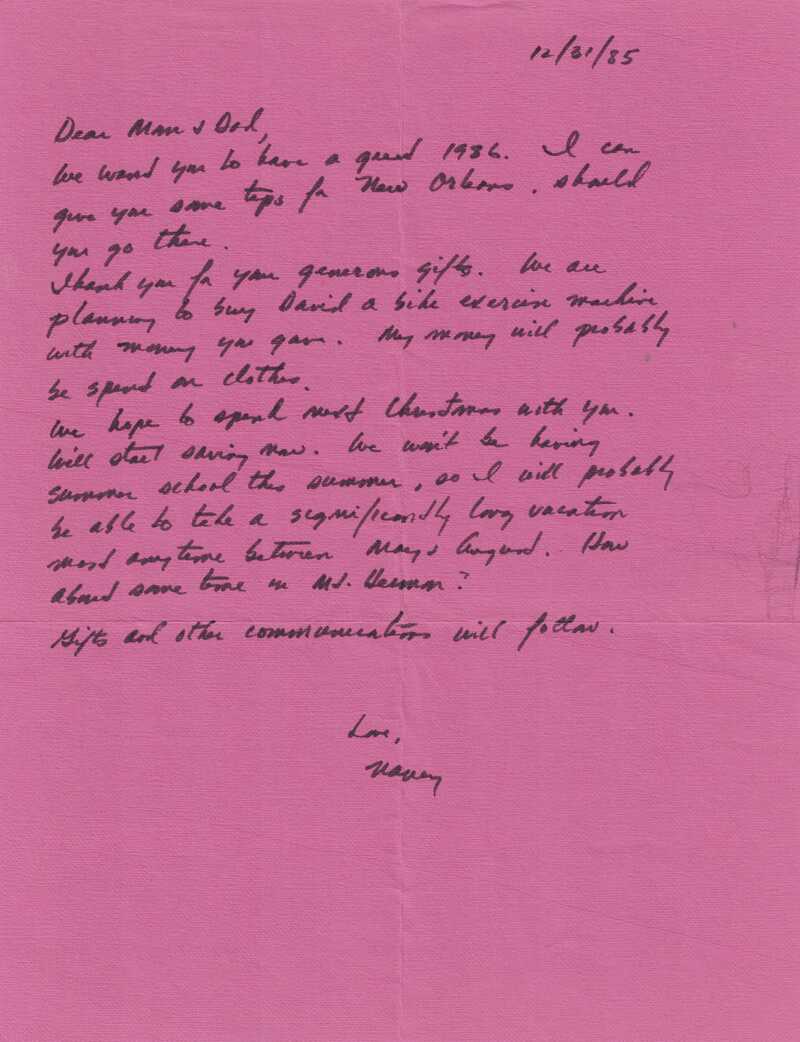 12/31/85
Dear Mom & Dad,
We want you to have a good 1986. I can
give you some tips for New Orleans, should
you go there.
Thank you for your generous gifts. We are
planning to buy David a bike exercise machine
with money you gave. My money will probably
be spend on clothes.
We hope to spend next Christmas with you.
Will start saving now. We won't be having
summer school this summer, so I will probably
be able to take a significantly long vacation
most anytime between May & August. How
about some time in Mt. Hermon?
Gifts and other communications will follow.
Love,
Nancy